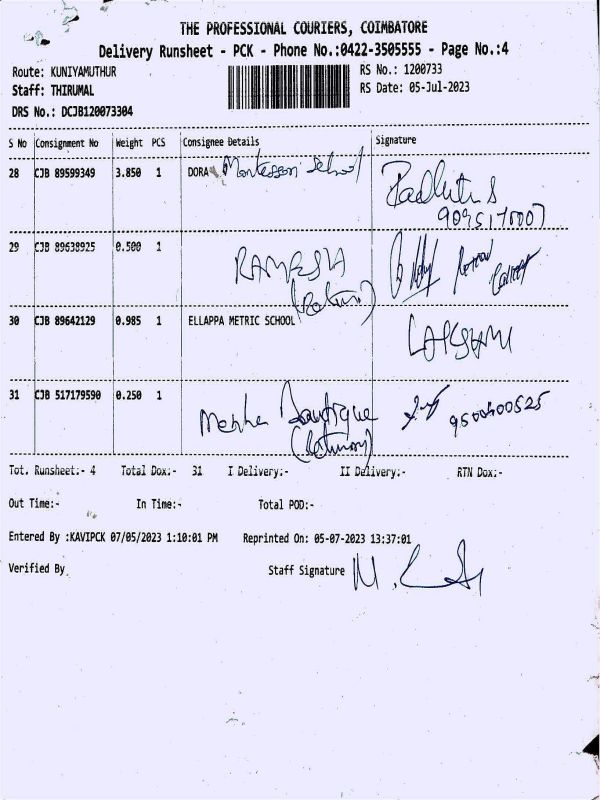 THE PROFESSIONAL COURIERS, COIMBATORE
Delivery Runsheet - PCK - Phone No.:0422-3505555 - Page No.:4
Route: KUNIYAMUTHUR RS No.: 1200733
Staff: THIRUMAL RS Date: 05-Jul-2023
DRS No.: DCJB120073304
S No Consignment No Weight PCS Consignee Details Signature
28 CJB 89599349 3.850 1 DORA Montessori School
29 CJB 89638925 0.500 1
RAMESH
30 CJB 89642129 0.985 1 ELLAPPA METRIC SCHOOL
LAKSHMI
31 CJB 517179590 0.250 1
Boutique 9500400525
Tot. Runsheet:- 4 Total Dox:- 31 I Delivery:- II Delivery:- RTN Dox:-
Out Time:- In Time:- Total POD:-
Entered By :KAVIPCK 07/05/2023 1:10:01 PM Reprinted On: 05-07-2023 13:37:01
Verified By Staff Signature